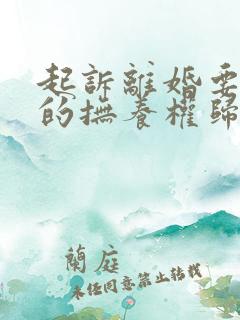 起訴離婚要
的撫養權歸
蘭庭
未经同意禁止转载